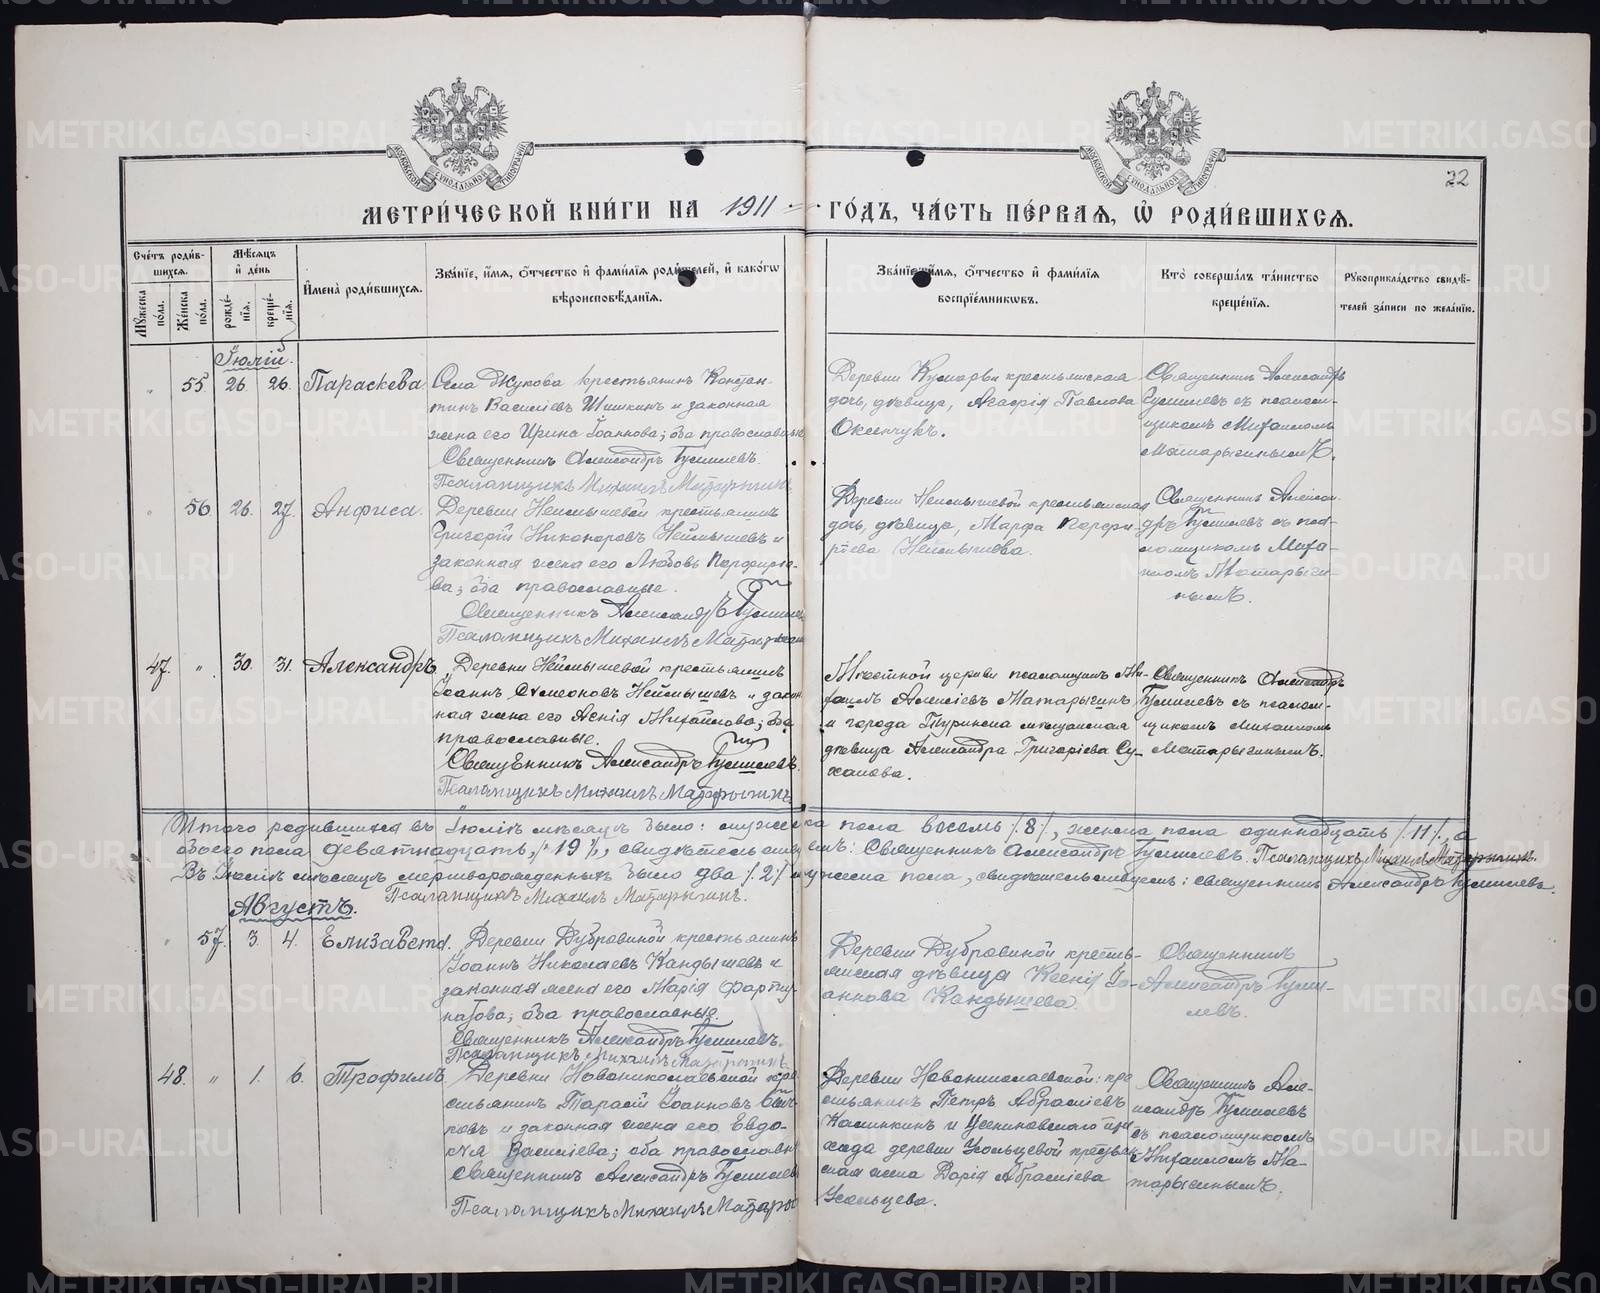 МЕТРИ́ЧЕСКОЙ КНИ́ГИ НА 1911 ГО́ДЪ, ЧА́СТЬ ПЕ́РВАЯ, Ѡ РОДИ́ВШИХСЯ.
22
Сче́тъ роди́в-
шихся.
Му́жеска по́ла.
Же́нска по́ла.
Мѣ́сяцъ и де́нь
рожде́-
нїя.
креще́-
нїя.
Имена̀ роди́вшихся.
Зва́нїе, и́мя, о́тчество и фами́лїя роди́телей, и како́гѡ
вѣроисповѣ́данїя.
Зва́нїе, и́мя, о́тчество и фами́лїя
воспрїе́мникѡвъ.
Кто̀ соверша́лъ та́инство
креще́нїя.
Рукоприкла́дство свидѣ́-
телей за́писи по жела́нїю.
Іюлій.
55 26. 26. Параскева.
Села Жукова крестьянинъ Констан-
тинъ Василіевъ Шишкинъ и законная
жена его Ирина Іоаннова; оба православные
Священникъ Александръ
Псаломщикъ Михаилъ Матарыгинъ
крестьянская
дочь, дѣвица, Агафія Павлова
Священникъ Александръ
съ псалом-
щикомъ Михаиломъ
Матарыгинымъ.
56. 26. 27. Анфиса.
Деревни Неймышевой крестьянинъ
Григорій Никаноровъ Неймышевъ и
законная жена его Любовь Порфирье-
ва; оба православные.
Священникъ Александръ
Псаломщикъ Михаилъ Матарыгинъ
Деревни Неймышевой крестьянская
дочь, дѣвица, Марфа Порфи-
рьева Неймышева.
Священникъ Алексан-
дръ съ пса-
ломщикомъ Миха-
иломъ Матарыги-
нымъ.
47. " 30. 31. Александръ
Деревни Неймышевой крестьянинъ
Іоаннъ Симеоновъ Неймышевъ и закон-
ная жена его Ксенія Михаилова; оба
православные.
Священникъ Александръ
Псаломщикъ Михаилъ Матарыгинъ.
Мѣстной церкви псаломщикъ Ми-
хаилъ Алексіевъ Матарыгинъ
и города Туринска мѣщанская
дѣвица Александра Григоріева Су-
ханова.
Священникъ Александръ
съ псалом-
щикомъ Михаиломъ
Матарыгинымъ.
Итого родившихся въ Іюлѣ мѣсяцѣ было: мужеска пола восемь /8/, женска пола одиннадцать /11/, а
обоего пола девятнадцать, /19/, свидѣтельствуемъ: Священникъ Александръ Псаломщикъ Михаилъ Матарыгинъ.
Въ Іюлѣ мѣсяцѣ мертворожденныхъ было два /2/ мужеска пола, свидѣтельствуемъ: священникъ Александръ
Псаломщикъ Михаилъ Матарыгинъ.
Августъ.
" 57. 3. 4. Елизавета.
Деревни Дубровиной крестьянинъ
Іоаннъ Николаевъ Кандышевъ и
законная жена его Марія Форту-
натова; оба православные.
Священникъ Александръ
Псаломщикъ Михаилъ Матарыгинъ
Деревни Дубровиной кресть-
янская дѣвица Ксенія Іо-
аннова Кандышева.
Священникъ
Александръ
48. " 1. 6. Трофимъ
Деревни Новониколаевской кре-
стьянинъ Тарасій Іоанновъ
и законная жена его Евдо-
кія Василіева; оба православн
Священникъ Александръ
Псаломщикъ Михаилъ Матарыг
Деревни Новониколаевской: кре-
стьянинъ Петръ Абрамовъ
Калинкинъ и при-
хода деревни Усольцевой крестьян-
ская жена Дарія
Усольцева.
Священникъ Але-
ксандръ
съ псаломщикомъ
Михаиломъ Ма-
тарыгинымъ.